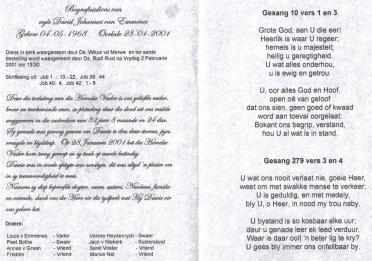 Begrafnisdiens van
wyle David Johannes van Emmenes
Gebore 04-05-1968 Oorlede 28-01-2001
Diens in kerk waargeneem deur Ds. Wikus vd Merwe en ter aarde
bestelling word waargeneem deur Ds. Rudi Rust op Vrydag 2 Februarie
2001 om 13:30
Skriflesing uit: Job 1 : 13 - 22, Job 39: 44
Job 40: 4, Job 42: 1 - 6
Deur die beslissing van die Hemelse Vader is ons geliefde vader,
broer en
weggeneem in die ouderdom van 32 jaar 8 maande en 24 dae.
vreugde en blydskap. Op 28 Januarie 2001 het die Hemelse
Vader hom terug geroep en sy taak op aarde beëindig.
in sy teenwoordigheid te wees.
Namens sy diep bedroefde dogter, ouers, susters, familie
en vriende, dank ons die Here vir die tydperk wat Hy Dawie vir
ons geleen het.
Draers:
Louis v Emmenes - Vader - Versey Heydenrych - Swaer
Peet Botha - Swaer - Jaco v Niekerk - Susterskind
Annes v Graan - Vriend - Sarel Vester - Vriend
Freddie - Vriend - Marius Nel - Vriend
Gesang 10 vers 1 en 3
Grote God, aan U die eer!
Heerlik is waar U regeer;
hemels is u majesteit;
heilig u geregtigheid.
U wat alles onderhou,
u is ewig en getrou.
U, oor alles God en Hoof,
open oë van geloof
dat ons sien, geen goed of kwaad
word aan toeval oorgelaat:
Bokant ons begrip, verstand,
hou U al wat is in stand.
Gesang 279 vers 3 en 4
U wat ons nooit verlaat nie, goeie Heer,
weet om met swakke mense te verkeer;
U is geduldig, en met medely,
bly U, o Heer, in nood my trou naby.
U bystand is so kosbaar elke uur;
deur u genade leer ek leed verduur.
Waar is daar ooit 'n beter lig te kry?
U gees bly immer ons onfeilbaar by.